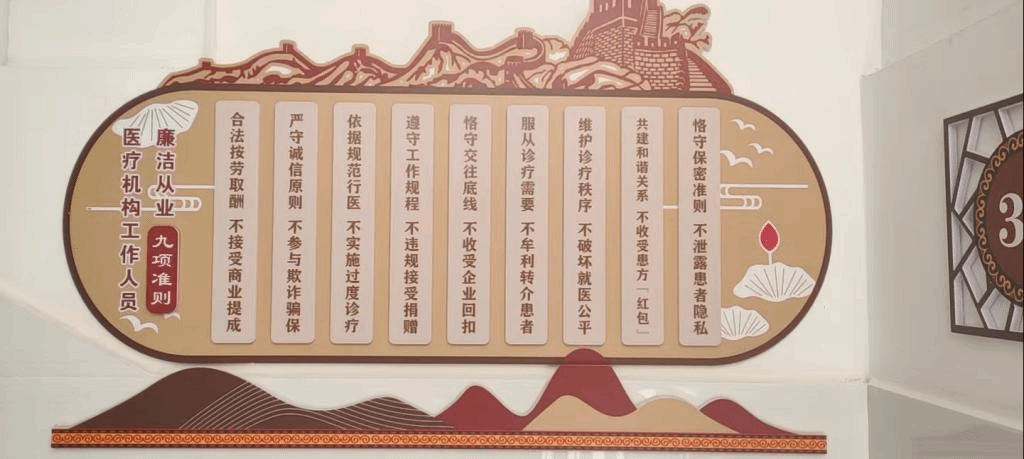 医疗机构工作人员
廉洁从业
九项准则
合法按劳取酬 不接受商业提成
严守诚信原则 不参与欺诈骗保
依据规范行医 不实施过度诊疗
遵守工作规程 不违规接受捐赠
恪守交往底线 不收受企业回扣
服从诊疗需要 不牟利转介患者
维护诊疗秩序 不破坏就医公平
共建和谐关系 不收受患方「红包」
恪守保密准则 不泄露患者隐私
3